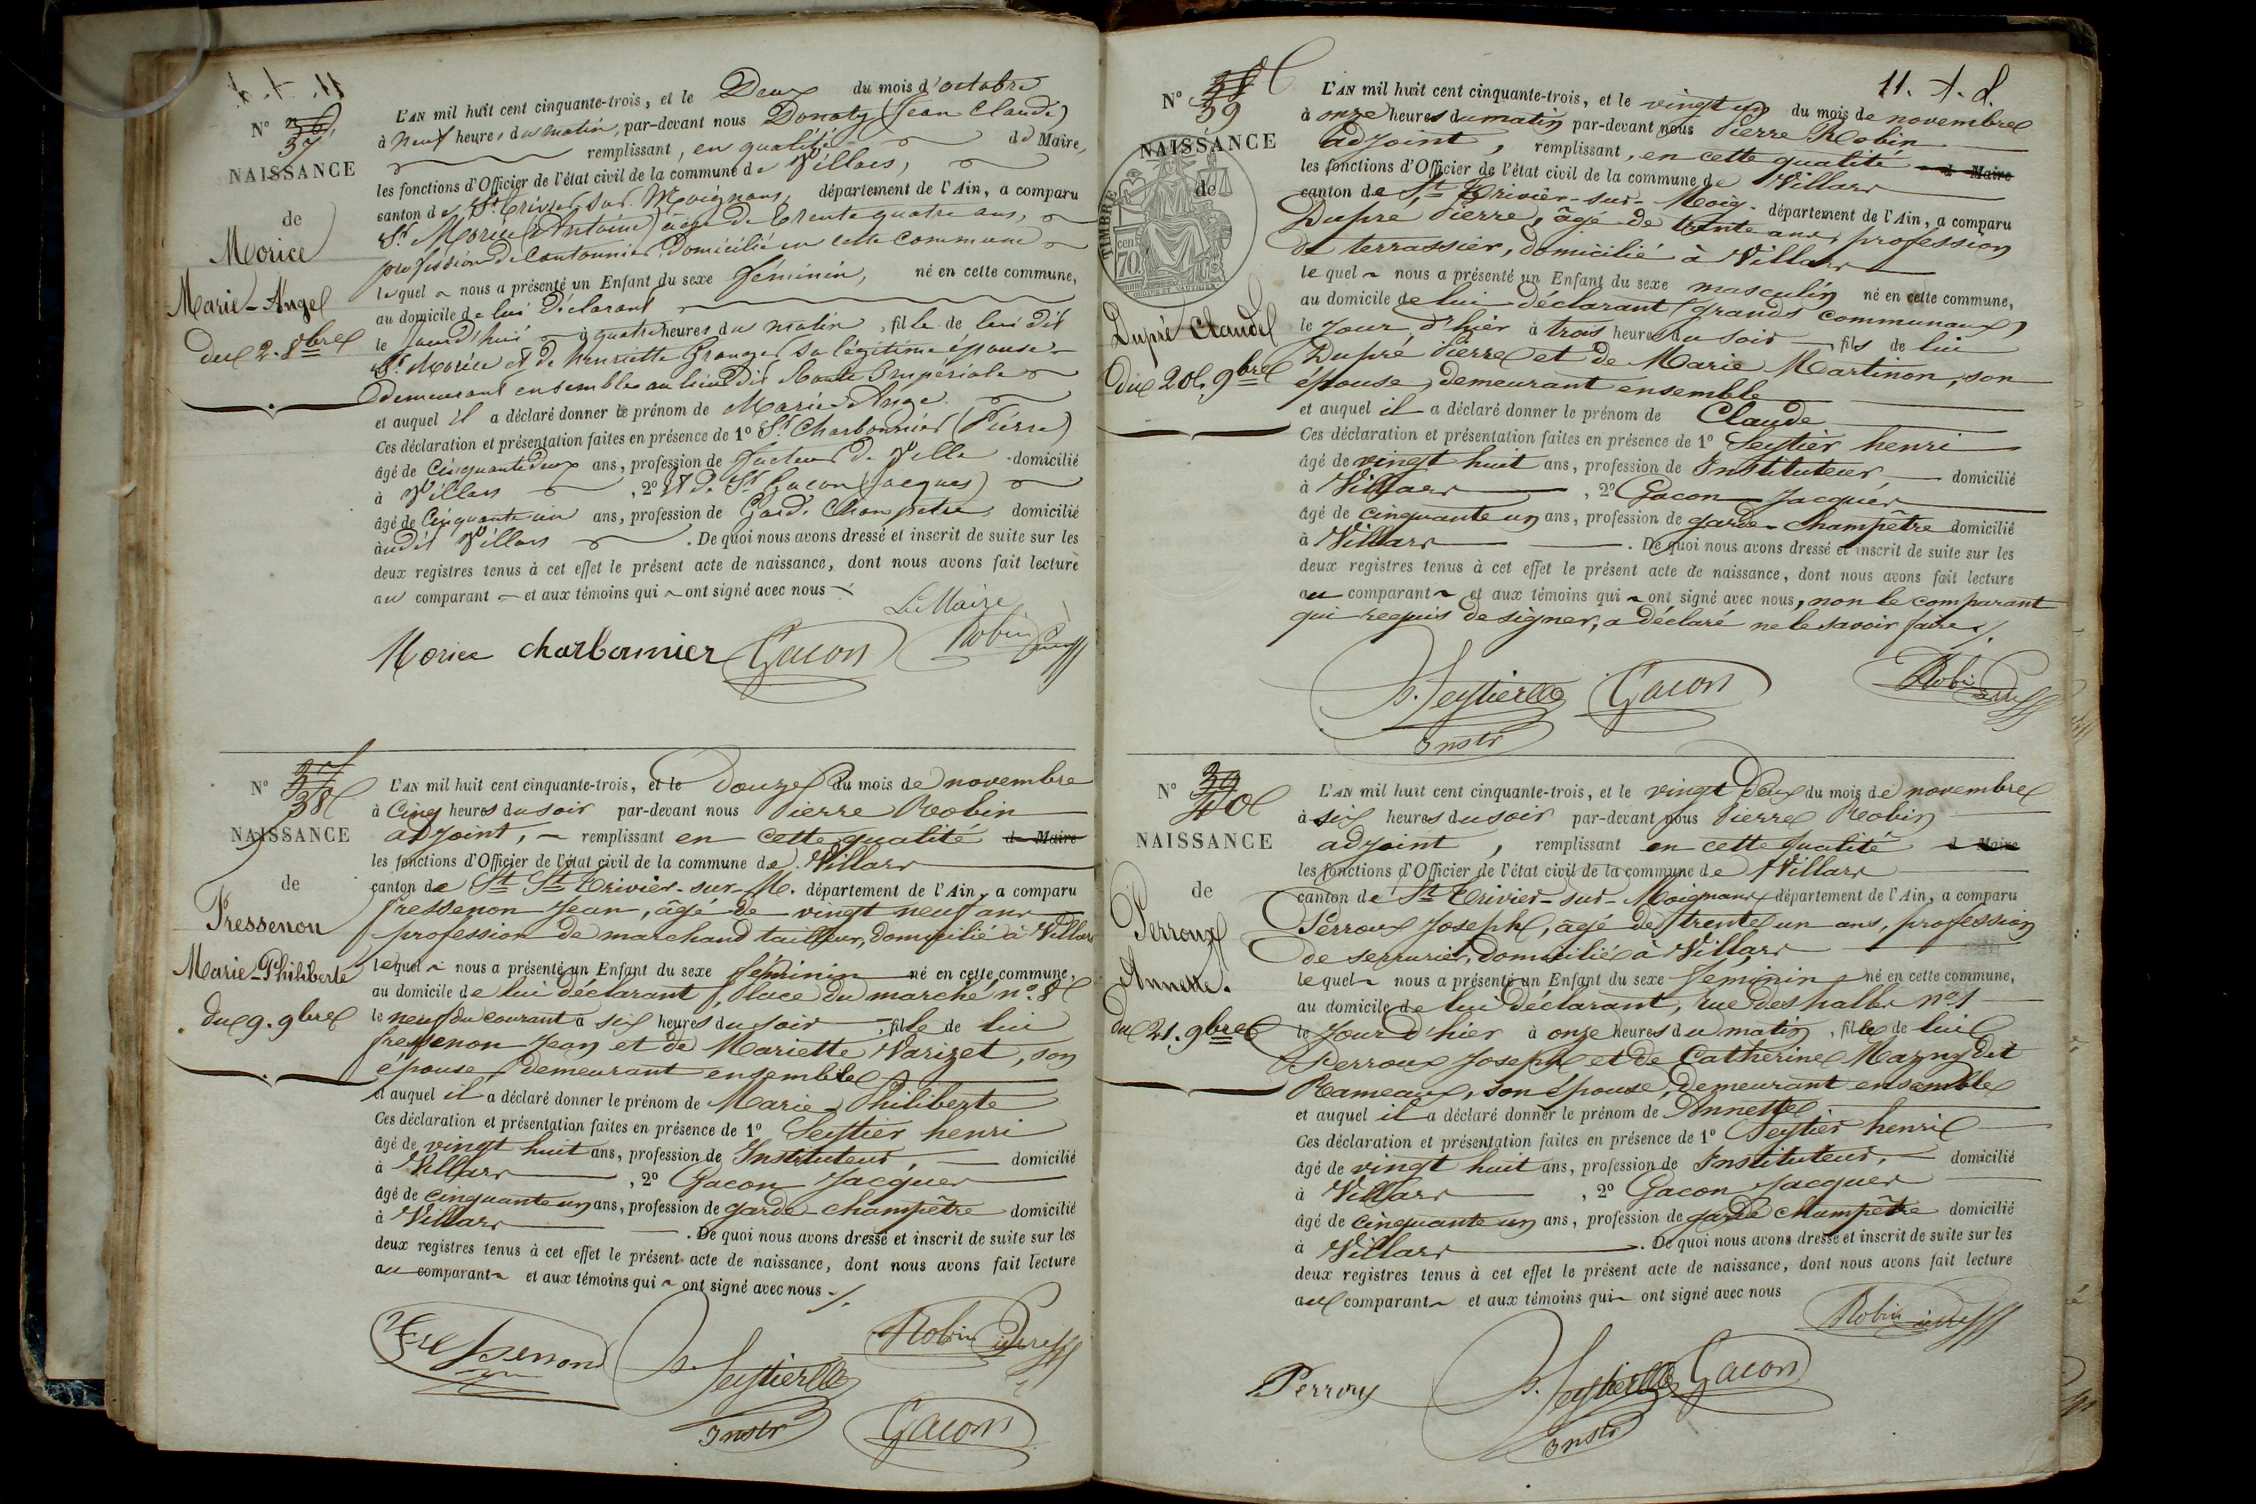 N° 36
37
NAISSANCE
de
Morice
Marie-Ange
du 2. 8bre
L'AN mil huit cent cinquante-trois, et le Deux du mois d'octobre
à Neuf heures du matin, par-devant nous Donaty (Jean Claude)
remplissant, en qualité de Maire,
les fonctions d'Officier de l'état civil de la commune de Villars,
canton de St Trivier sur Moignans, département de l'Ain, a comparu
Sr Morice (Antoine) âgé de Trente quatre ans,
profession de Cantonnier, Domicilié en cette commune
lequel nous a présenté un Enfant du sexe féminin, né en cette commune,
au domicile de lui Déclarant
le Jourd'hui à quatre heures du matin, fille de lui dit
Sr Morice et de Henriette Granger sa légitime épouse
demeurant ensemble au lieu Dit Route Impériale
et auquel il a déclaré donner le prénom de Marie Ange
Ces déclaration et présentation faites en présence de 1° Sr Charbonnier (Pierre)
âgé de Cinquante deux ans, profession de facteur de Ville domicilié
à Villars, 2° Et de Sr Gacon (Jacques)
âgé de Cinquante un ans, profession de Garde Champetre domicilié
audit Villars. De quoi nous avons dressé et inscrit de suite sur les
deux registres tenus à cet effet le présent acte de naissance, dont nous avons fait lecture
au comparant et aux témoins qui ont signé avec nous
Le Maire
Morice charbonnier Gacon Robin
N° 37
38
NAISSANCE
de
Pressenon
Marie-Philiberte
du 9. 9bre
L'AN mil huit cent cinquante-trois, et le Douze du mois de novembre
à Cinq heures du soir par-devant nous Pierre Robin
adjoint, remplissant en cette qualité de Maire
les fonctions d'Officier de l'état civil de la commune de Villars
canton de St St Trivier-sur-M. département de l'Ain, a comparu
Pressenon Jean, âgé de vingt neuf ans
profession de marchand tailleur, domicilié à Villars
lequel nous a présenté un Enfant du sexe féminin né en cette commune,
au domicile de lui déclarant, Place du marché n° 8
le neuf du courant à six heures du soir, fille de lui
Pressenon Jean et de Mariette Varizet, son
épouse, demeurant ensemble
et auquel il a déclaré donner le prénom de Marie-Philiberte
Ces déclaration et présentation faites en présence de 1° Seytier henri
âgé de vingt huit ans, profession de Instituteur, domicilié
à Villars, 2° Gacon Jacques
âgé de cinquante un ans, profession de garde-champêtre domicilié
à Villars. De quoi nous avons dressé et inscrit de suite sur les
deux registres tenus à cet effet le présent acte de naissance, dont nous avons fait lecture
au comparant et aux témoins qui ont signé avec nous
Pressenon Seytier Robin
Instr Gacon
11. + d.
N° 38
39
NAISSANCE
de
TIMBRE
70
Dupré Claude
du 20. 9bre
L'AN mil huit cent cinquante-trois, et le vingt un du mois de novembre
à onze heures du matin par-devant nous Pierre Robin
adjoint, remplissant, en cette qualité d Maire
les fonctions d'Officier de l'état civil de la commune de Villars
canton de St Trivier-sur-Moig. département de l'Ain, a comparu
Dupré Pierre, âgé de trente ans, profession
de terrassier, domicilié à Villars
lequel nous a présenté un Enfant du sexe masculin né en cette commune,
au domicile de lui déclarant (grands communaux,
le Jour d'hier à trois heures du soir, fils de lui
Dupré Pierre et de Marie Martinon, son
épouse, demeurant ensemble
et auquel il a déclaré donner le prénom de Claude
Ces déclaration et présentation faites en présence de 1° Seytier henri
âgé de vingt huit ans, profession de Instituteur domicilié
à Villars, 2° Gacon Jacques
âgé de cinquante un ans, profession de garde-champêtre domicilié
à Villars. De quoi nous avons dressé et inscrit de suite sur les
deux registres tenus à cet effet le présent acte de naissance, dont nous avons fait lecture
au comparant et aux témoins qui ont signé avec nous, non le comparant
qui requis de signer, a déclaré ne le savoir faire.
Seytier Gacon Robin
Instr
N° 39
40
NAISSANCE
de
Perroux
Annette.
du 21. 9bre
L'AN mil huit cent cinquante-trois, et le vingt Deux du mois de novembre
à six heures du soir par-devant nous Pierre Robin
adjoint, remplissant en cette qualité d Maire
les fonctions d'Officier de l'état civil de la commune de Villars
canton de St Trivier-sur-Moignans département de l'Ain, a comparu
Perroux Joseph, âgé de trente un ans, profession
de serrurier, domicilié à Villars
lequel nous a présenté un Enfant du sexe féminin né en cette commune,
au domicile de lui déclarant, rue des halles n° 1
le Jour d'hier à onze heures du matin, fille de lui
Perroux Joseph et de Catherine Mazny dit
Rameaux, son épouse, demeurant ensemble
et auquel il a déclaré donner le prénom de Annette
Ces déclaration et présentation faites en présence de 1° Seytier henri
âgé de vingt huit ans, profession de Instituteur, domicilié
à Villars, 2° Gacon Jacques
âgé de cinquante un ans, profession de garde champêtre domicilié
à Villars. De quoi nous avons dressé et inscrit de suite sur les
deux registres tenus à cet effet le présent acte de naissance, dont nous avons fait lecture
au comparant et aux témoins qui ont signé avec nous
Robin
Perroux Seytier Gacon
Instr